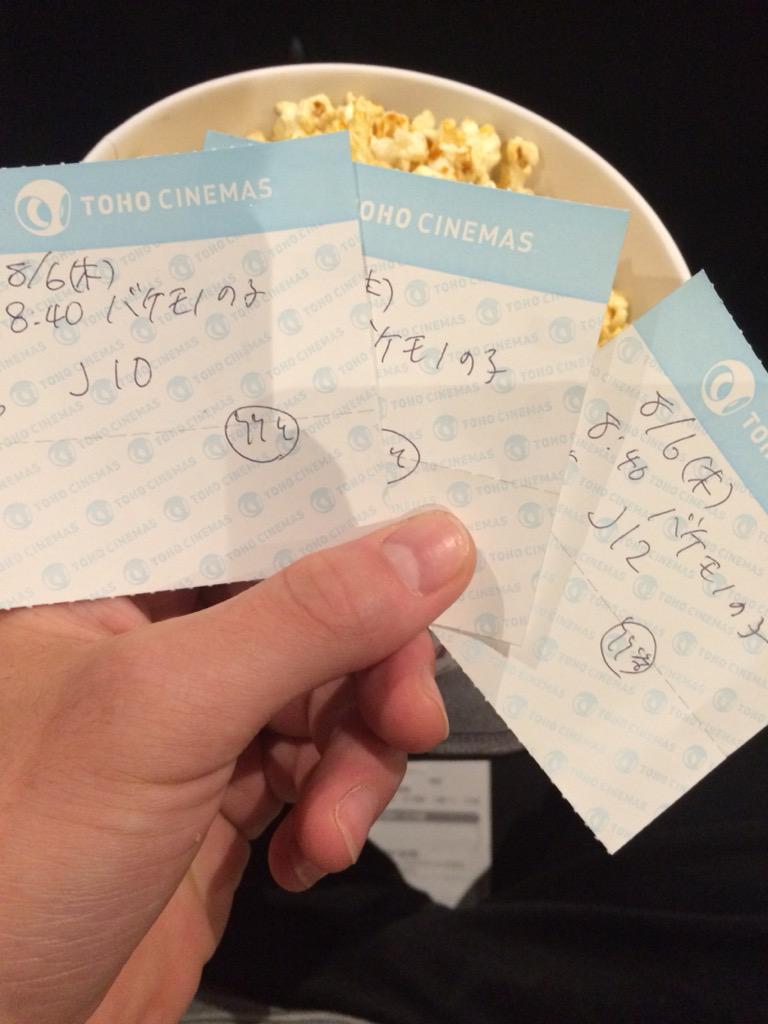 TOHO CINEMAS
8/6(木)
8:40 バケモノの子
J 10
OHO CINEMAS
ケモノの子
TOH
8/6(木)
8:40 バケモノの子
J12